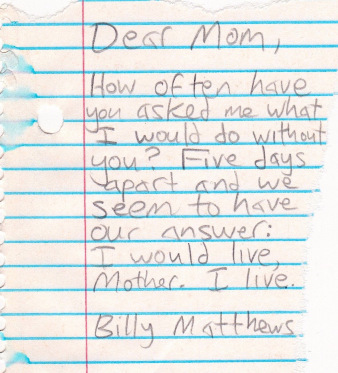 Dear Mom,
How often have
you asked me what
I would do without
you? Five days
apart and we
seem to have
our answer:
I would live,
Mother. I live.
Billy Matthews